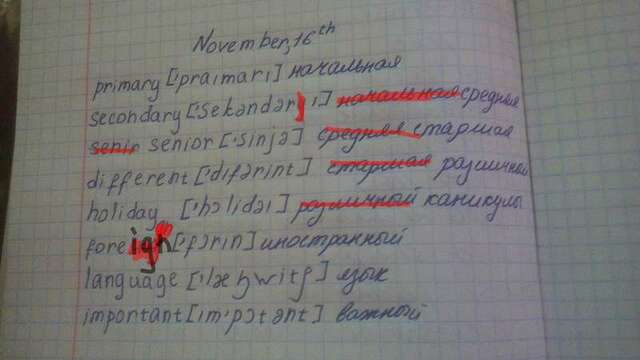 November, 16th
primary ['praımarı] начальная
secondary ['sekəndər ı] начальная средняя
senir senior ['sinjə] средняя старшая
different ['difərint] старшая различный
holiday ['hɔlidəı] различный каникулы
foreign ['fɔrın] иностранный
language ['læŋwitʃ] язык
important [ım'pɔtənt] важный